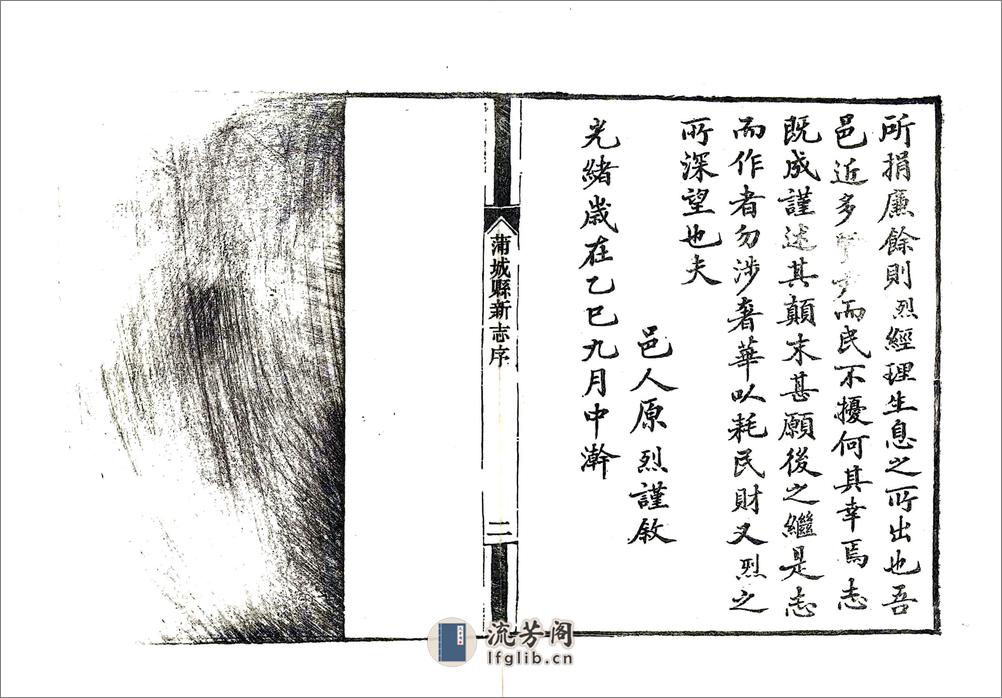 所捐廉餘則烈經理生息之所出也吾
邑近多而民不擾何其幸焉志
既成謹述其顛末甚願後之繼是志
而作者勿涉奢華以耗民財又烈之
所深望也夫
邑人原烈謹敘
光緒歲在乙巳九月中澣
蒲城縣新志序
二
流芳阁
lfglib.cn